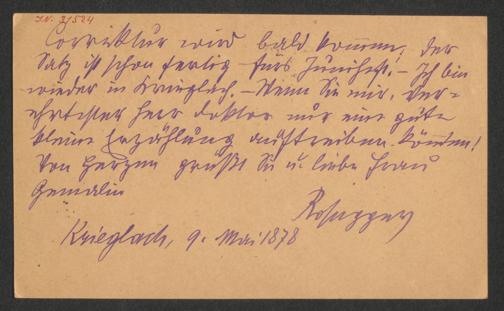 I.N. 31524
Correktur wird bald kommen, der
Satz ist schon fertig fürs Juniheft! – Ich bin
wieder in Krieglach. – Wenn Sie mir, ver=
ehrtester Herr Doktor nur eine gute
kleine Erzählung auftreiben könnten!
Von Herzen grüßt Sie u. liebe Frau
Gemalin
Rosegger
Krieglach, 9. Mai 1878